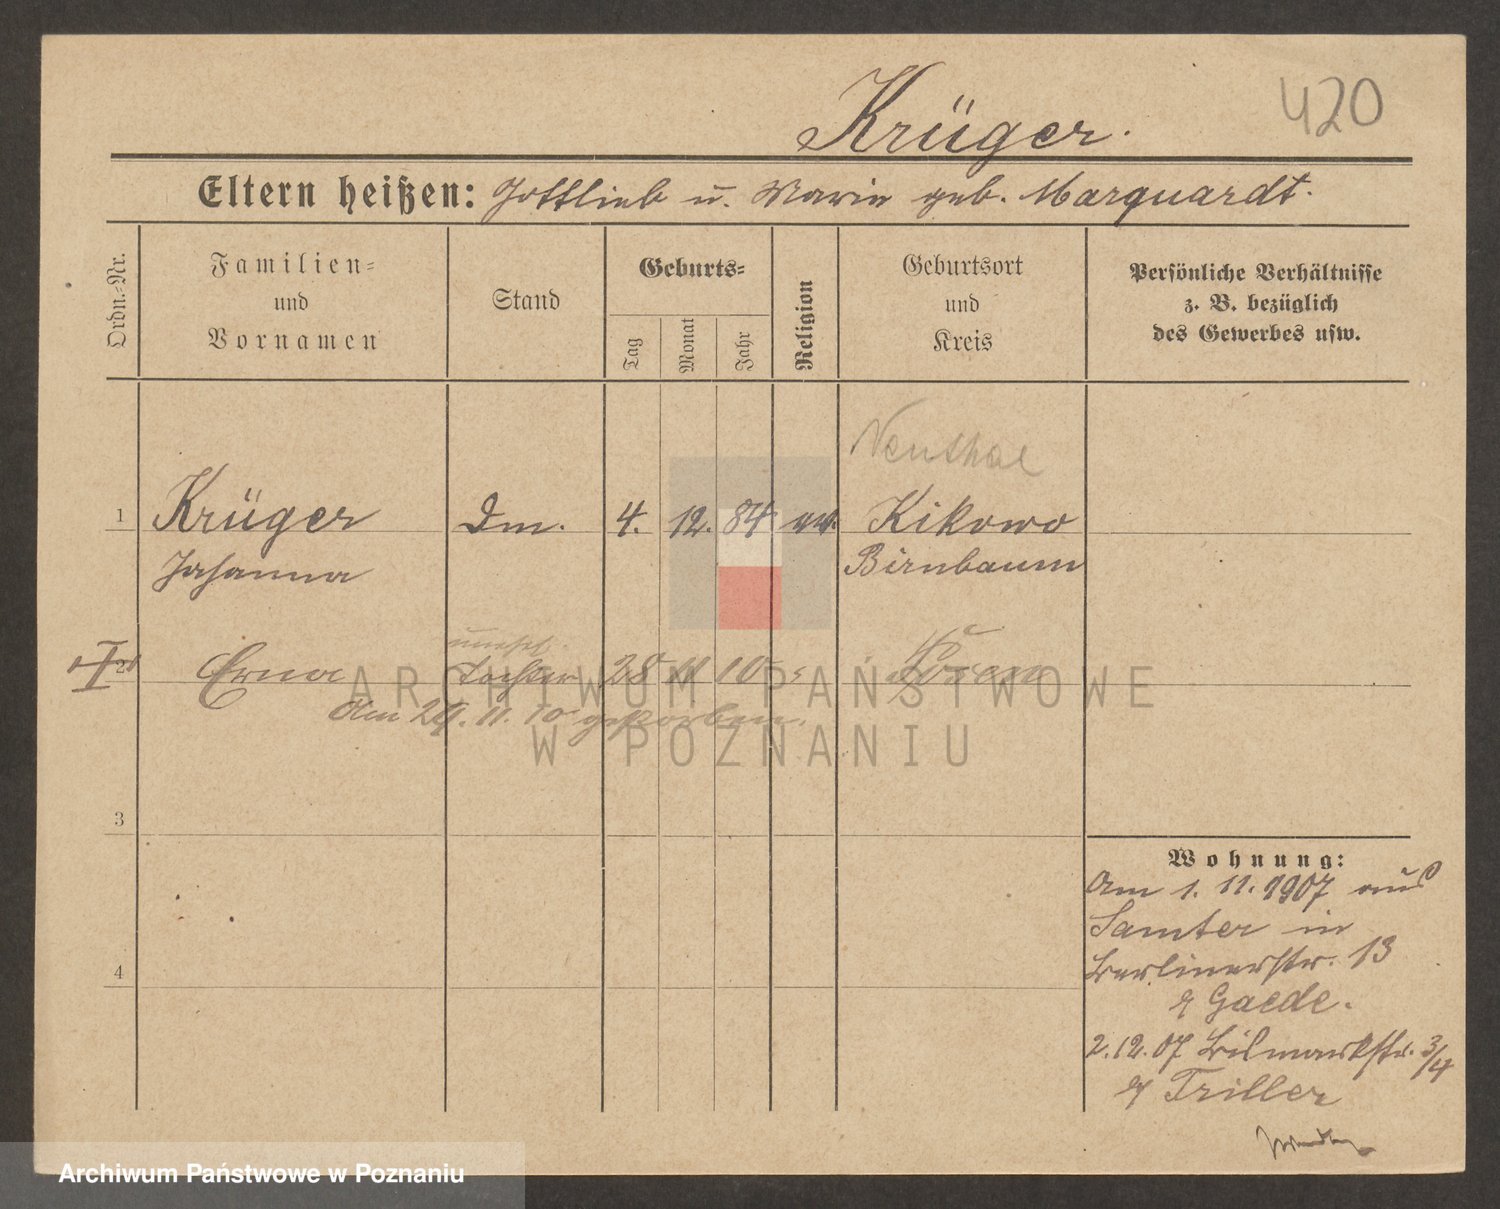 Krüger.
420
Eltern heißen: Gottlieb u. Marie geb. Marquardt.
Ordn.-Nr.
Familien-
und
Vornamen
Stand
Geburts-
Tag
Monat
Jahr
Religion
Geburtsort
und
Kreis
Persönliche Verhältnisse
z. B. bezüglich
des Gewerbes usw.
Neuthal
1 Krüger Dm. 4. 12. 84 ev. Kikowo
Johanna Birnbaum
unehl.
2 Erna Tochter 28 11 10 Posen
Am 29. 11. 10 gestorben.
ARCHIWUM PAŃSTWOWE
W POZNANIU
3
4
Wohnung:
Am 1. 11. 1907 aus
Samter in
Berlinerstr. 13
Gaede.
2.12.07 Bismarckstr. 3/4
Triller
Archiwum Państwowe w Poznaniu